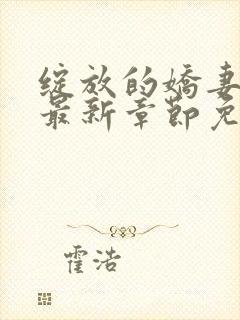 绽放的娇妻
最新章节免
霍浩